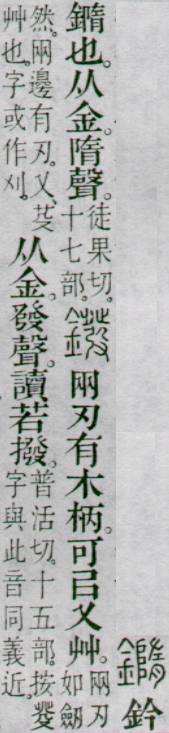 䥣鈐
䥣也。从金。隋聲。徒果切。十七部。鏺兩刃有木柄。可㠯乂艸。兩刃如劒
然。兩邊有刃。乂、芟艸也。字或作刈。从金。發聲。讀若撥。普活切。十五部。按癹字與此音同義近。